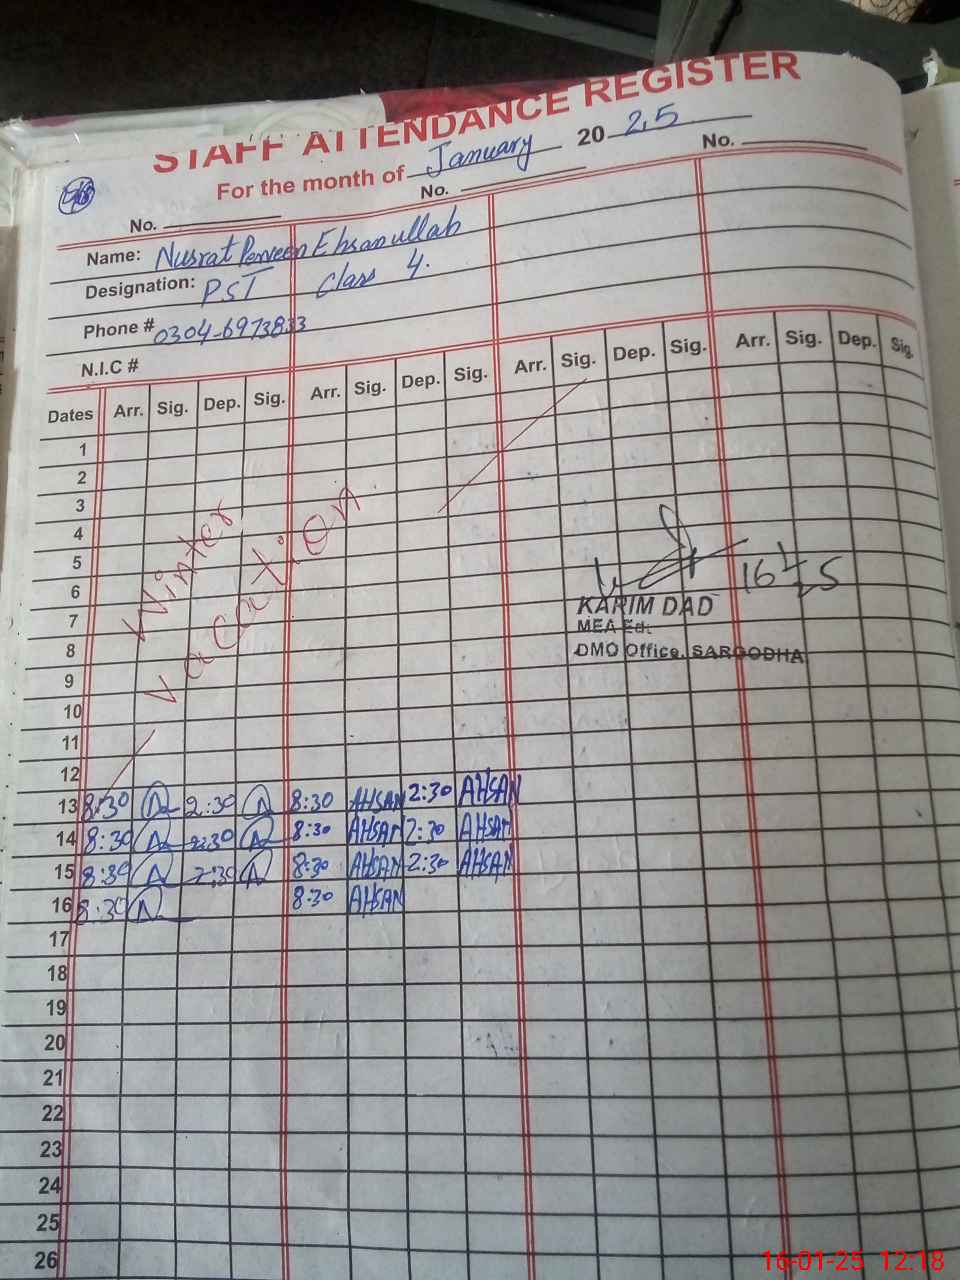 STAFF ATTENDANCE REGISTER
For the month of January 2025
No. No. No.
Name: Nusrat Perveen Ehsanullah
Designation: PST Class 4.
Phone # 0304-6973833
N.I.C #
Dates Arr. Sig. Dep. Sig. Arr. Sig. Dep. Sig. Arr. Sig. Dep. Sig. Arr. Sig. Dep. Sig.
1
2
3
4
5
6
7
8
9
10
11
12
Winter
vacation
16 1/25
KARIM DAD
MEA Ed:
DMO Office, SARGODHA
13 8:30 2:30 8:30 AHSAN 2:30 AHSAN
14 8:30 2:30 8:30 AHSAN 2:30 AHSAN
15 8:30 2:30 8:30 AHSAN 2:30 AHSAN
16 8:30 8:30 AHSAN
17
18
19
20
21
22
23
24
25
26
16-01-25 12:18